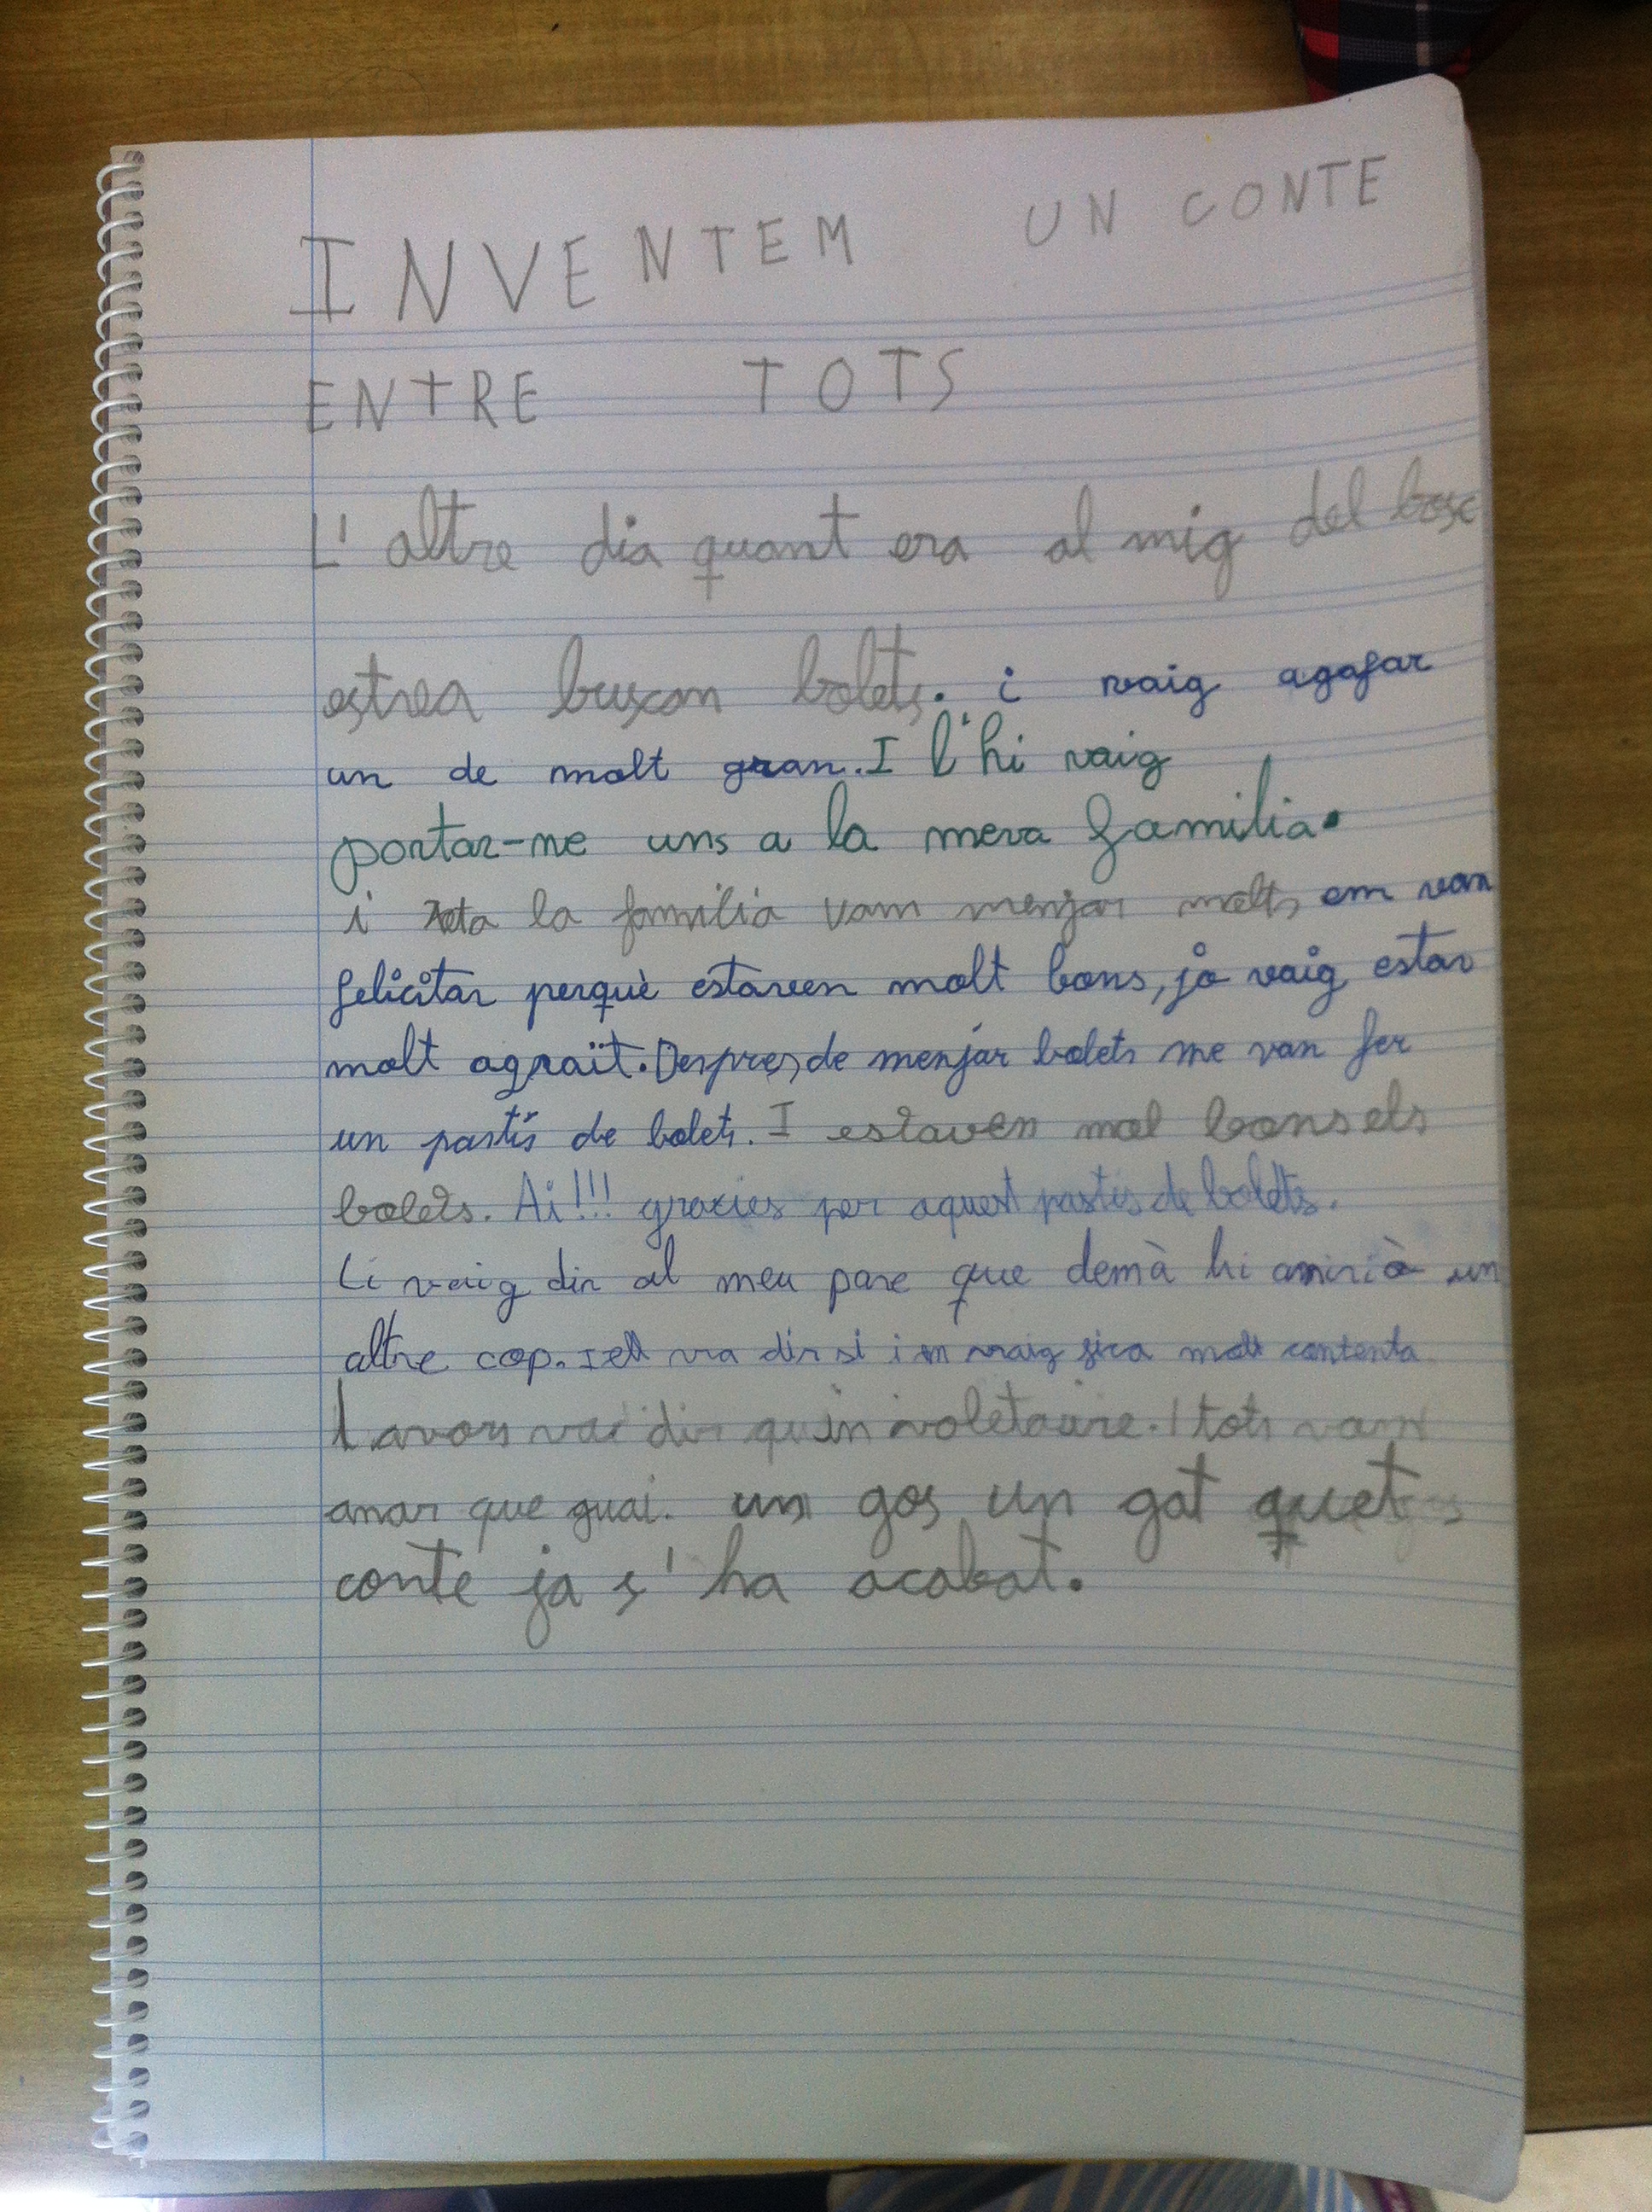 INVENTEM UN CONTE
ENTRE TOTS
L'altre dia quant era al mig del bosc
estrea buscan bolets. i vaig agafar
un de molt gran. I l'hi vaig
portar-ne uns a la meva familia.
i tota la familia vam menjar molts em van
felicitar perquè estaven molt bons, jo vaig estar
molt agraït. Despres de menjar bolets me van fer
un pastís de bolets. I estaven mol bons els
bolets. Ai!!! gracies per aquest pastis de bolets.
Li vaig dir al meu pare que demà hi aniria un
altre cop. I ell va dir si i m vaig fica molt contenta
Lavors va dir quin voletaire. I tots vam
anar que guai. un gos un gat quet
conte ja s'ha acabat.